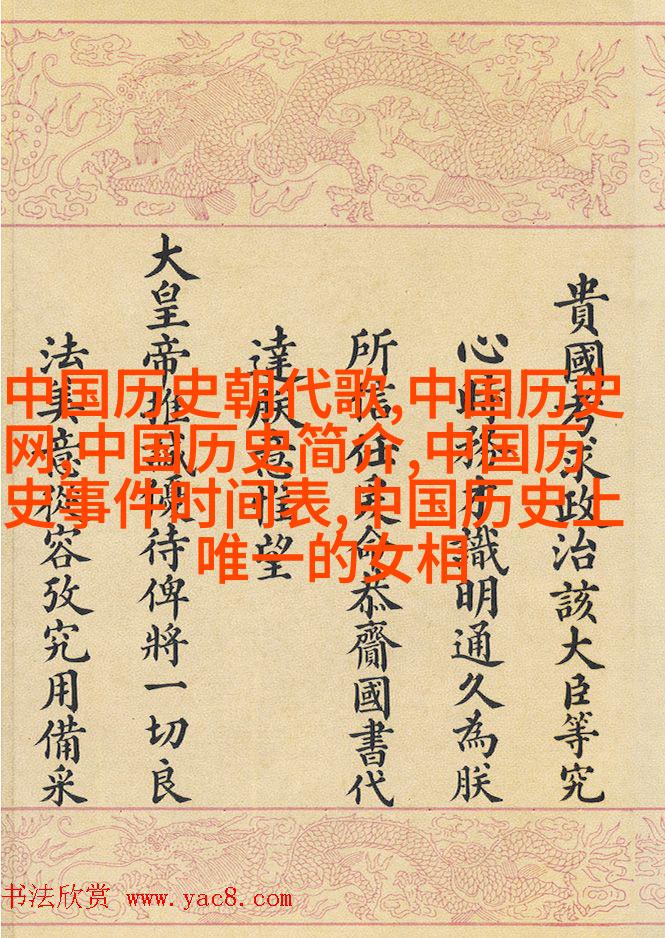 貴國考求政治該大臣等究
心時務才識明通久為朕
所信任爰命恭齎國書代
達朕意惟望
大皇帝推誠優待俾將一切良
法美意從容攷究用備采
中国历史朝代歌,中国历史
网,中国历史简介,中国历
史事件时间表,中国历史上
唯一的女相
书法欣赏 www.yac8.com